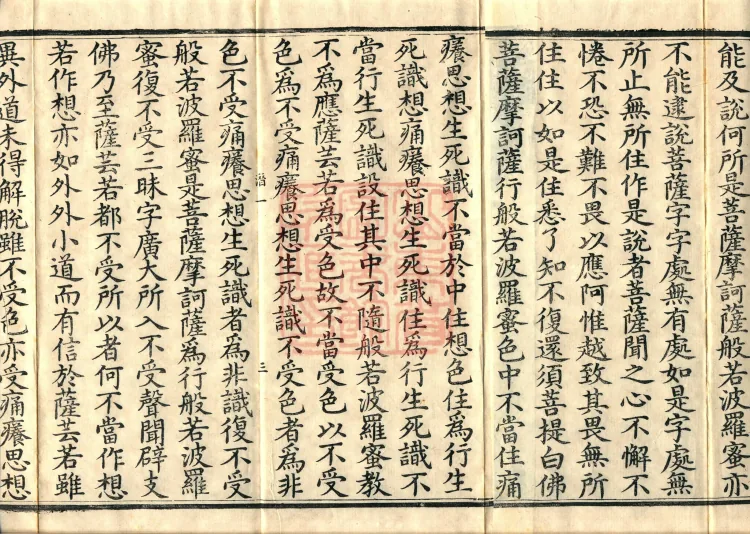 能及說何所是菩薩摩訶薩般若波羅蜜亦
不能逮說菩薩字字處無有處如是字處無
所止無所住作是說者菩薩聞之心不懈不
惓不恐不難不畏以應阿惟越致其畏無所
住住以如是住悉了知不復還須菩提白佛
菩薩摩訶薩行般若波羅蜜色中不當住痛
癢思想生死識不當於中住想色住爲行生
死識想痛癢思想生死識住爲行生死識不
當行生死識設住其中不隨般若波羅蜜教
不爲應薩芸若爲受色故不當受色以不受
色爲不受痛癢思想生死識不受色者爲非
三
色不受痛癢思想生死識者爲非識復不受
般若波羅蜜是菩薩摩訶薩爲行般若波羅
蜜復不受三昧字廣大所入不受聲聞辟支
佛乃至薩芸若都不受所以者何不當作想
若作想亦如外外小道而有信於薩芸若雖
異外道未得解脫雖不受色亦受痛癢思想